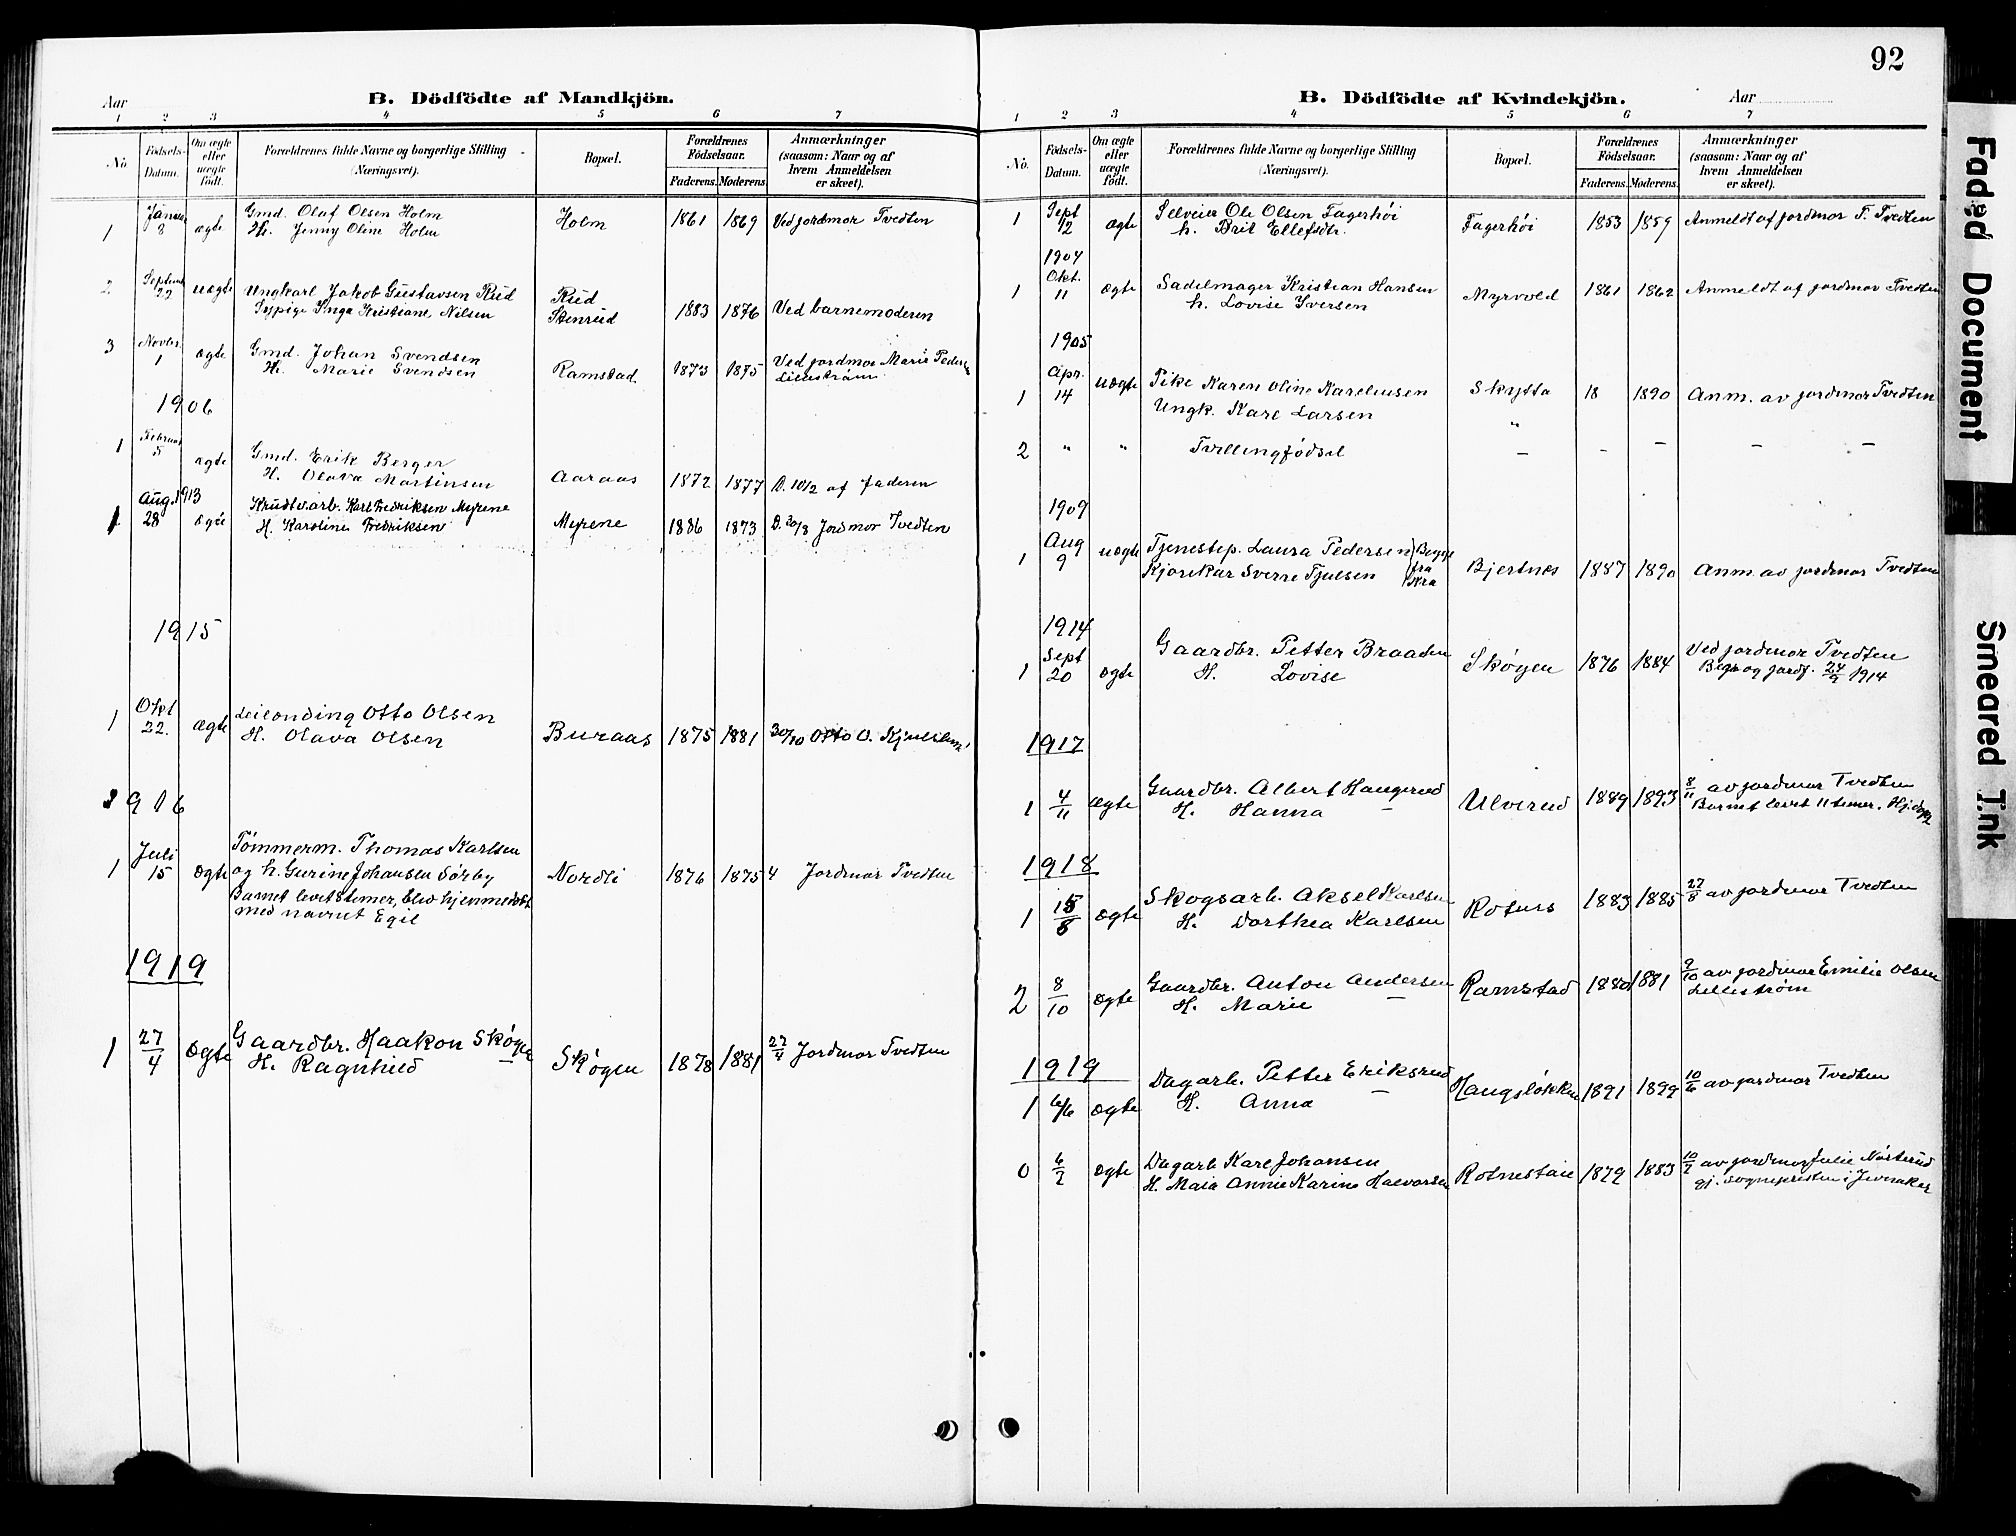 92
Aar
B. Dödfödte af Mandkjön.
1 2 3 4 5 6 7
No.
Födsels-Datum.
Om ægte eller uægte födt.
Forældrenes fulde Navne og borgerlige Stilling (Næringsvei).
Bopæl.
Forældrenes Födselsaar.
Faderens. Moderens.
Anmærkninger (saasom: Naar og af hvem Anmeldelsen er skeet).
1 Januar 8 ægte Gmd. Olaf Olsen Holm Holm 1861 1869 Ved jordmor Tvedten
H. Jenny Oline Holm
2 Septemb 22 uægte Ungkarl Jakob Gustavsen Rud Rud 1883 1876 Ved barnemoderen
Inga Kristiane Nilsen Stenrud
3 Novbr. 1 ægte Gmd. Johan Svendsen Ramstad 1873 1875 Ved jordmor Marie Peders
H. Marie Svendsen Lillestrøm
1906
1 Februar 5 ægte Gmd. Erik Berger Aaraas 1872 1877 D. 10/2 af faderen
H. Olava Martinsen
Aug. 1913
1 28 ægte Krudtv.arb. Karl Fredriksen Myrene Myrene 1886 1873 D. 30/8 Jordmor Tvedten
H. Karoline Fredriksen
1915
1 Okt 22. ægte Leilending Otto Olsen Buraas 1875 1881 30/10 Otto O.
H. Olava Olsen
1916
1 Juli 15 ægte Tømmerm. Thomas Karlsen Nordli 1876 1875 4 Jordmor Tvedten
og h. Gurine Johansen Sörby
Barnet levet 8 timer, blev hjemmedöbt
med navnet Egil
1919
1 27/4 ægte Gaardbr. Haakon Skøgen Skøgen 1878 1881 27/4 Jordmor Tvedten
H. Ragnhild —
B. Dödfödte af Kvindekjön.
Aar
1 2 3 4 5 6 7
No.
Födsels-Datum.
Om ægte eller uægte födt.
Forældrenes fulde Navne og borgerlige Stilling (Næringsvei).
Bopæl.
Forældrenes Födselsaar.
Faderens. Moderens.
Anmærkninger (saasom: Naar og af hvem Anmeldelsen er skeet).
1 Sept 12 ægte Selveier Ole Olsen Fagerhöi Fagerhöi 1853 1859 Anmeldt af jordmor T. Tvedten
h. Brit Ellefsdtr.
1904
1 Okt. 11 ægte Sadelmager Kristian Hansen Myrvold 1861 1862 Anmeldt af jordmor Tvedten
h. Lovise Iversen
1905
1 Apr. 14 uægte Pike Karen Oline Karelinsen Skytta 18 1890 Anm. av jordmor Tvedten
Ungk. Karl Larsen "
2 " " Tvillingfødsel — — — — —
1909
1 Aug 9 uægte Tjenestep. Laura Pedersen Begge fra Kra Bjertnes 1887 1890 Anm. av jordmor Tvedten
Kjørekar Sverre Tjulsen
1914
1 Sept 20 ægte Gaardbr. Petter Braaden Skøyen 1876 1884 Ved jordmor Tvedten
H. Lovise Begr og jordf. 24/9 1914
1917
1 4/11 ægte Gaardbr. Albert Haugerud Ulverud 1889 1893 8/11 av jordmor Tvedten
H. Hanna — Barnet levet 11 timer. Hj.døpt
1918
1 15/8 ægte Skogsarb. Aksel Karlsen Rotnes 1883 1885 27/8 av jordmor Tvedten
H. Dorthea Karlsen
2 8/10 ægte Gaardbr. Anton Andersen Ramstad 1880 1881 9/10 av jordmor Emilie Olsen
H. Marie — Lillestrøm
1919
1 6/6 ægte Dagarb. Petter Eriksrud Haugsløkken 1891 1899 10/6 av jordmor Tvedten
H. Anna —
0 6/2 ægte Dagarb Karl Johansen Rotnestaie 1879 1883 10/2 av jordmor Julie
H. Maia Annie Karine Halvorsen gj. sognepresten i Jevnaker
Faded Document
Smeared Ink